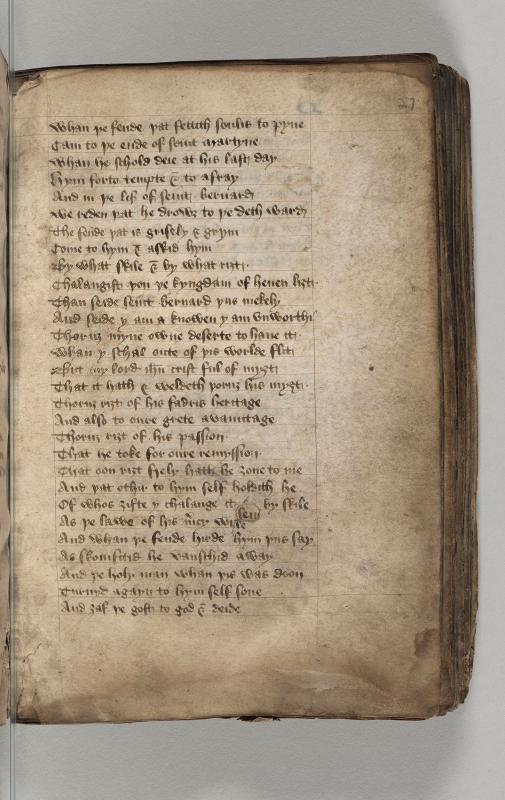 27
Whan þe fende þat fettith soulis to pyne
Cam to þe ende of seint martyne
Whan he schold deie at his last day
Hym forto tempte & to afray
And in þe lif of seint bernard
We reden þat he drowȝ to þe deth ward
The fende þat is grisely & grym
Come to hym & askid hym
By what skile & by what riȝt
Chalangist þou þe kyngdam of heuen liȝt
Than seide seint bernard þus mekely
And seide y am a knowen y am vnworthi
Thoruȝ myne owne deserte to haue it
Whan y schal oute of þis worlde flit
But my lord ihu crist ful of myȝt
That it hath & weldeth þoruȝ his myȝt
Thoruȝ riȝt of his fadris heritage
And also to oure grete avauntage
Thoruȝ riȝt of his passion
That he toke for oure remyssion
That oon riȝt frely hath he ȝone to me
And þat othir to hym self holdith he
Of whos ȝifte y chalange it by skile
As þe lawe of his mcy wile
And whan þe fende herde hym þus say
As skonfitid he vansshid away
And þe holy man whan þis was doon
Turnyd agayn to hym self sone
And ȝaf þe gost to god & deide